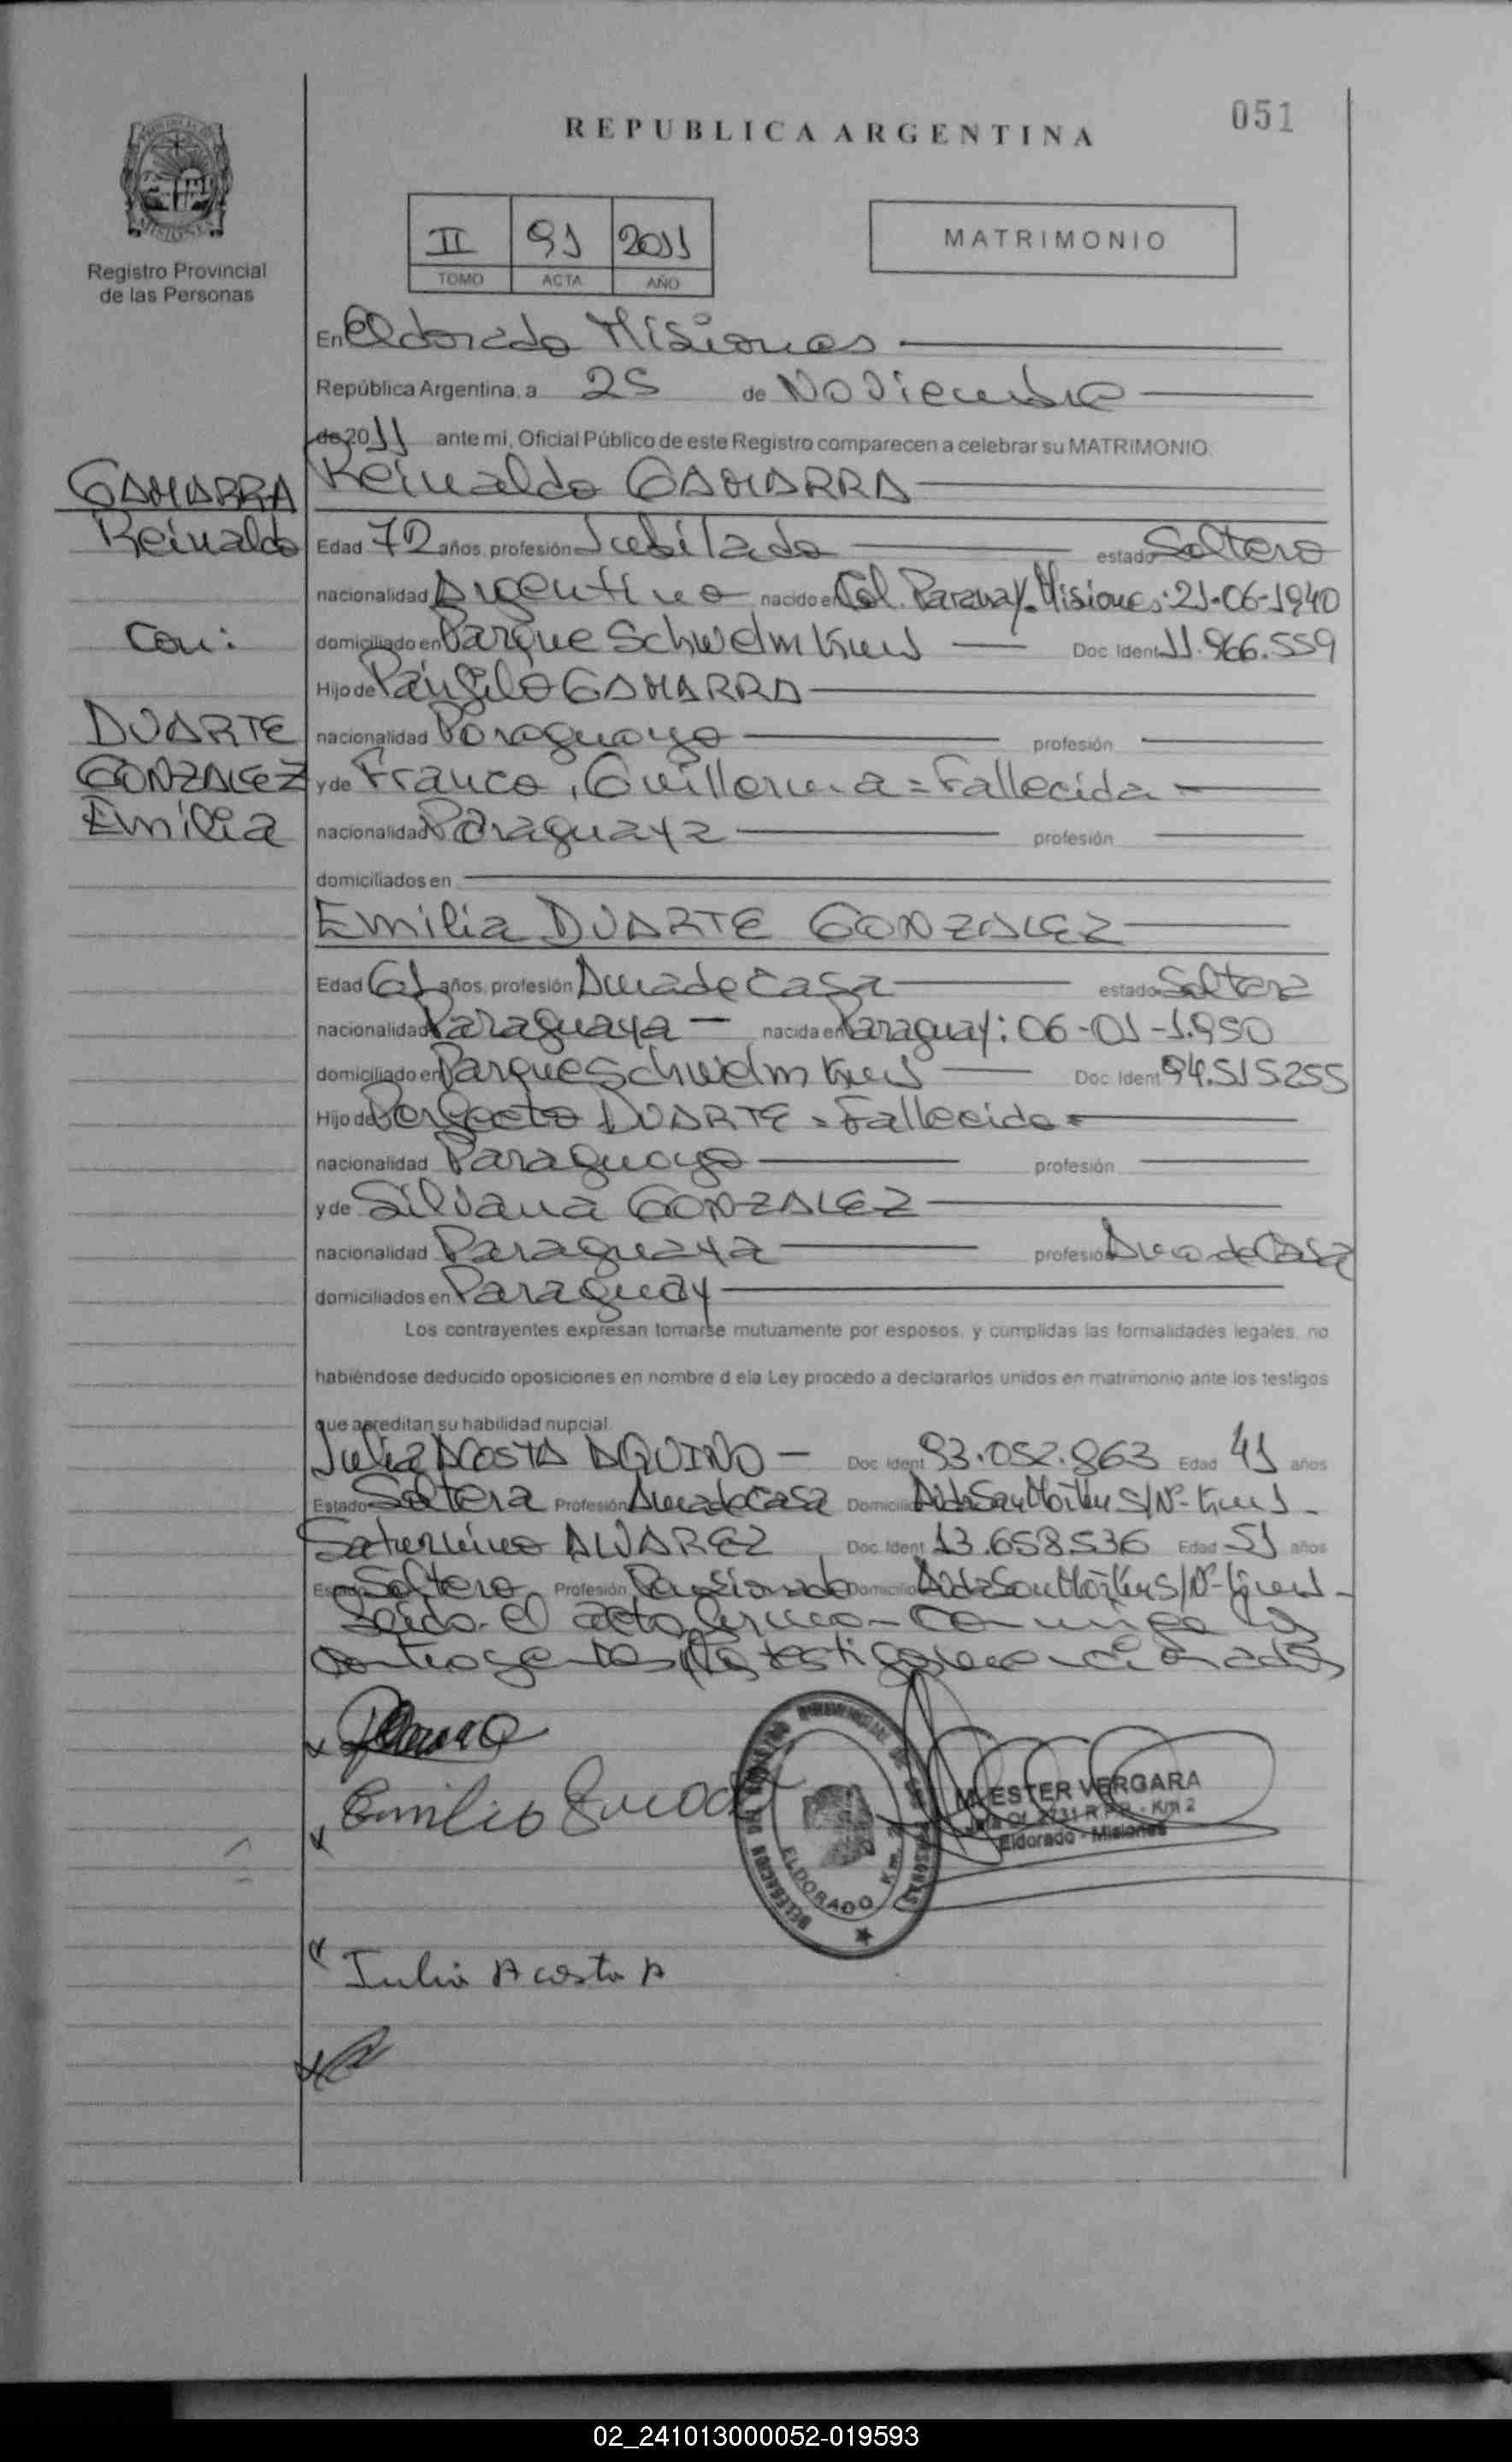 051
REPUBLICA ARGENTINA
II 91 2011
TOMO ACTA AÑO
MATRIMONIO
Registro Provincial
de las Personas
En Eldorado Misiones
República Argentina, a 25 de Noviembre
de 2011 ante mi, Oficial Público de este Registro comparecen a celebrar su MATRIMONIO
GAMARRA
Reinaldo
Con:
DUARTE
GONZALEZ
Emilia
Reinaldo GAMARRA
Edad 72 años, profesión Jubilado estado Soltero
nacionalidad Argentino nacido en Col. Paranay. Misiones: 21-06-1940
domiciliado en Parque Schwelm Km Doc Ident 11.966.559
Hijo de Pánfilo GAMARRA
nacionalidad Paraguayo profesión
y de Franco, Guillerma = Fallecida
nacionalidad Paraguaya profesión
domiciliados en
Emilia DUARTE GONZALEZ
Edad 61 años, profesión Ama de casa estado Soltera
nacionalidad Paraguaya nacida en Paraguay: 06-01-1.950
domiciliado en Parque Schwelm Km Doc Ident 94.515255
Hijo de Perfecto DUARTE = Fallecido =
nacionalidad Paraguayo profesión
y de Silvana GONZALEZ
nacionalidad Paraguaya profesión Ama de Casa
domiciliados en Paraguay
Los contrayentes expresan tomarse mutuamente por esposos, y cumplidas las formalidades legales, no
habiéndose deducido oposiciones en nombre d ela Ley procedo a declararlos unidos en matrimonio ante los testigos
que acreditan su habilidad nupcial.
Julia ACOSTA AQUINO - Doc Ident 93.052.863 Edad 41 años
Estado Soltera Profesión Ama de casa Domicilio Avda San Martin S/Nº- Km
Saturnino ALVAREZ Doc. Ident 13.658.536 Edad 51 años
Estado Soltero Profesión Pensionado Domicilio Avda San Martin S/Nº- Km
Leido el acto firman conmigo los
contrayentes y los testigos mencionados
Emilio
M. ESTER VERGARA
Of. 2731 R.P.P. - Km 2
Eldorado - Misiones
DELEGACION REGISTRO PROVINCIAL DE LAS PERSONAS
ELDORADO Km. 2
Julia Acosta A
02_241013000052-019593